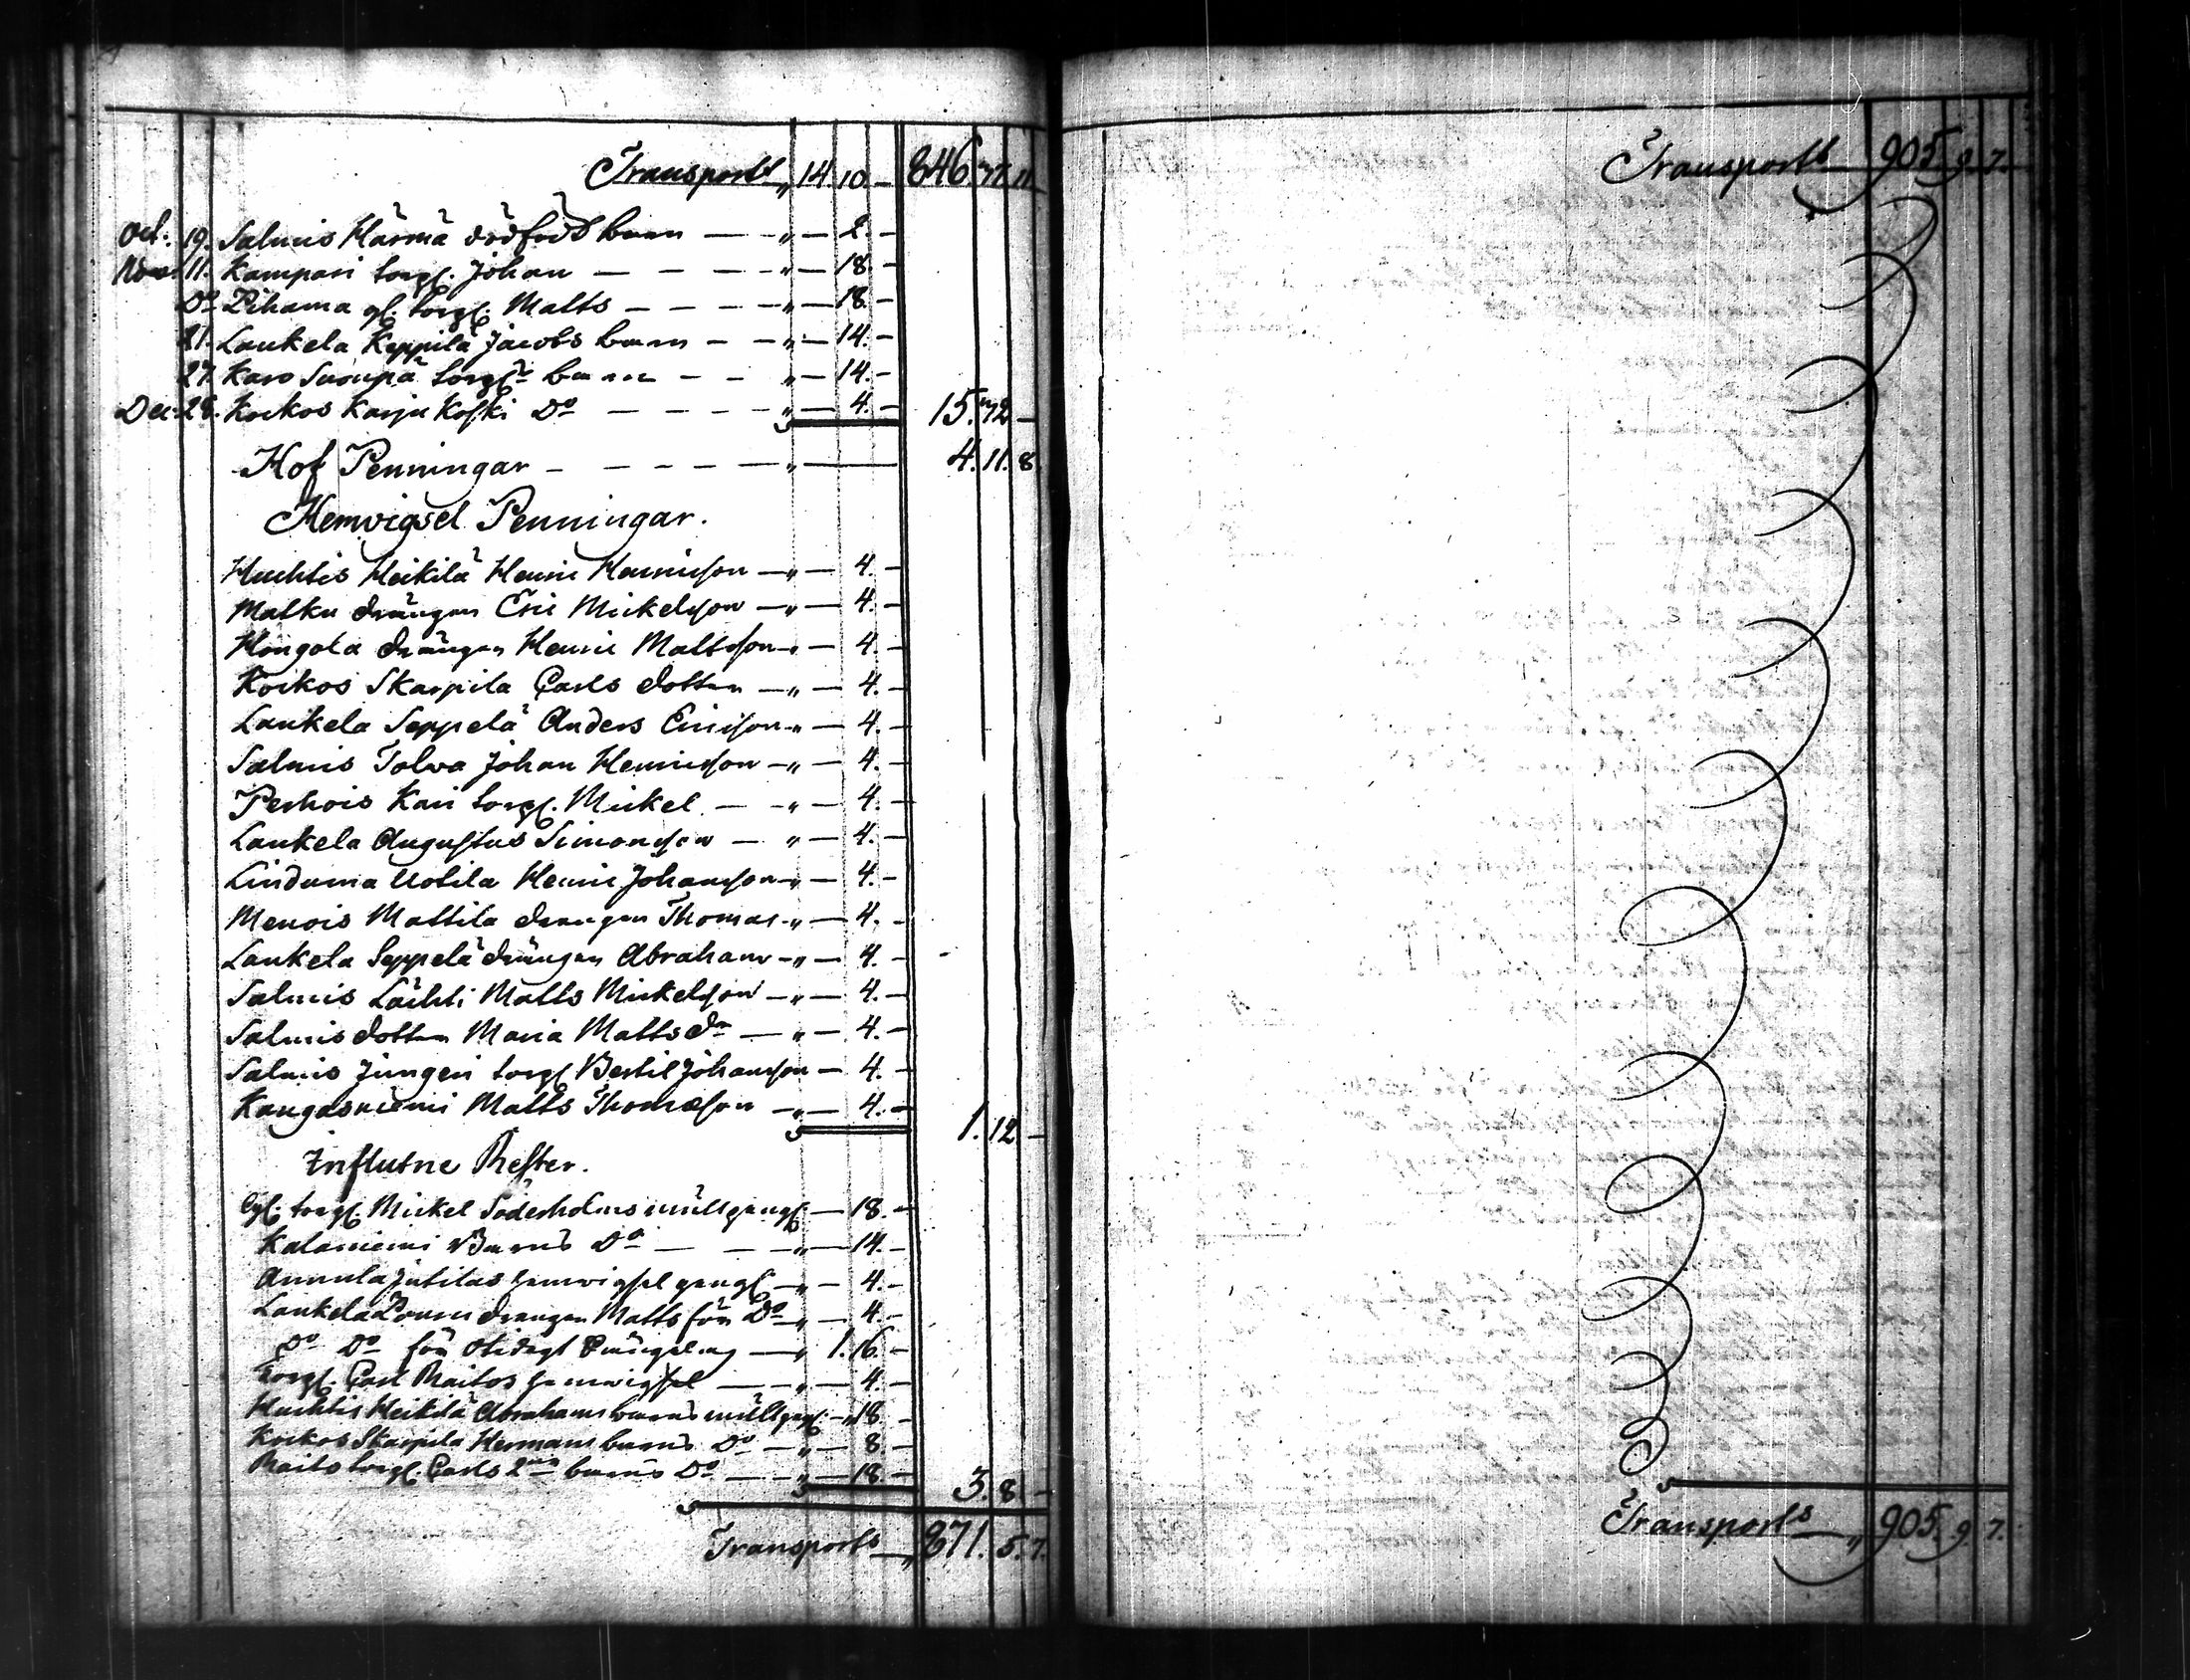 Transport „ 14 10 — 846 17 11
Oct: 19. Salmis Härmä dödfödt barn — „ — 2. —
Nov. 11. Kampari torp. Johan — — — „ — 18. —
Do Pihama gl. torp. Matts — — — „ — 18. —
21. Laukela Keppilä Jacobs barn — „ — 14. —
27. Karo Suonpä torps barn — — „ — 14. —
Dec: 28. Koikos Karju Koski Do — — — „ — 4. — 15. 12 —
Hof Penningar — — — — „ — 4. 11. 8.
Hemvigsel Penningar.
Huhtis Heikilä Henric Henricsson — „ — 4. —
Matku drängen Eric Mickelsson — „ — 4. —
Hongola drängen Henric Mattsson — „ — 4. —
Koikos Skarpila Carls dotter — „ — 4. —
Laukela Seppelä Anders Ericsson „ — 4. —
Salmis Tolva Johan Henricsson — „ — 4. —
Perhois Kari torp. Mickel — „ — 4. —
Laukela Augustus Simonsson — „ — 4. —
Linduma Uotila Henric Johansson „ — 4. —
Menois Mattila drängen Thomas „ — 4. —
Laukela Seppelä drängen Abraham — „ — 4. —
Salmis Lächti Matts Mickelsson — „ — 4. —
Salmis dotter Maria Matts dr — „ — 4. —
Salmis Jungeri torp Bertil Johansson — 4. —
Kangasniemi Matts Thomasson — „ — 4. — 1. 12 —
Influtne Rester.
torp. Mickel Söderholms — 18. —
Kalaniemi Barns Do — — „ — 14. —
Annula Jutilas hemvigsel — „ — 4. —
Laukela drängen Matts för Do „ — 4. —
Do Do för — „ 1. 16. —
Torp. Carl Raitos hemvigsel — „ — 4. —
Huhtis Heikilä Abrahams barns — „ 18. —
Koikos Skarpila Hermans barns Do — „ — 8. —
Raito torp. Carls 2ne barns Do — „ — 18 — 3. 8. —
Transport „ 871. 5. 7.
Transport 905. 9. 7.
Transport „ 905. 9. 7.